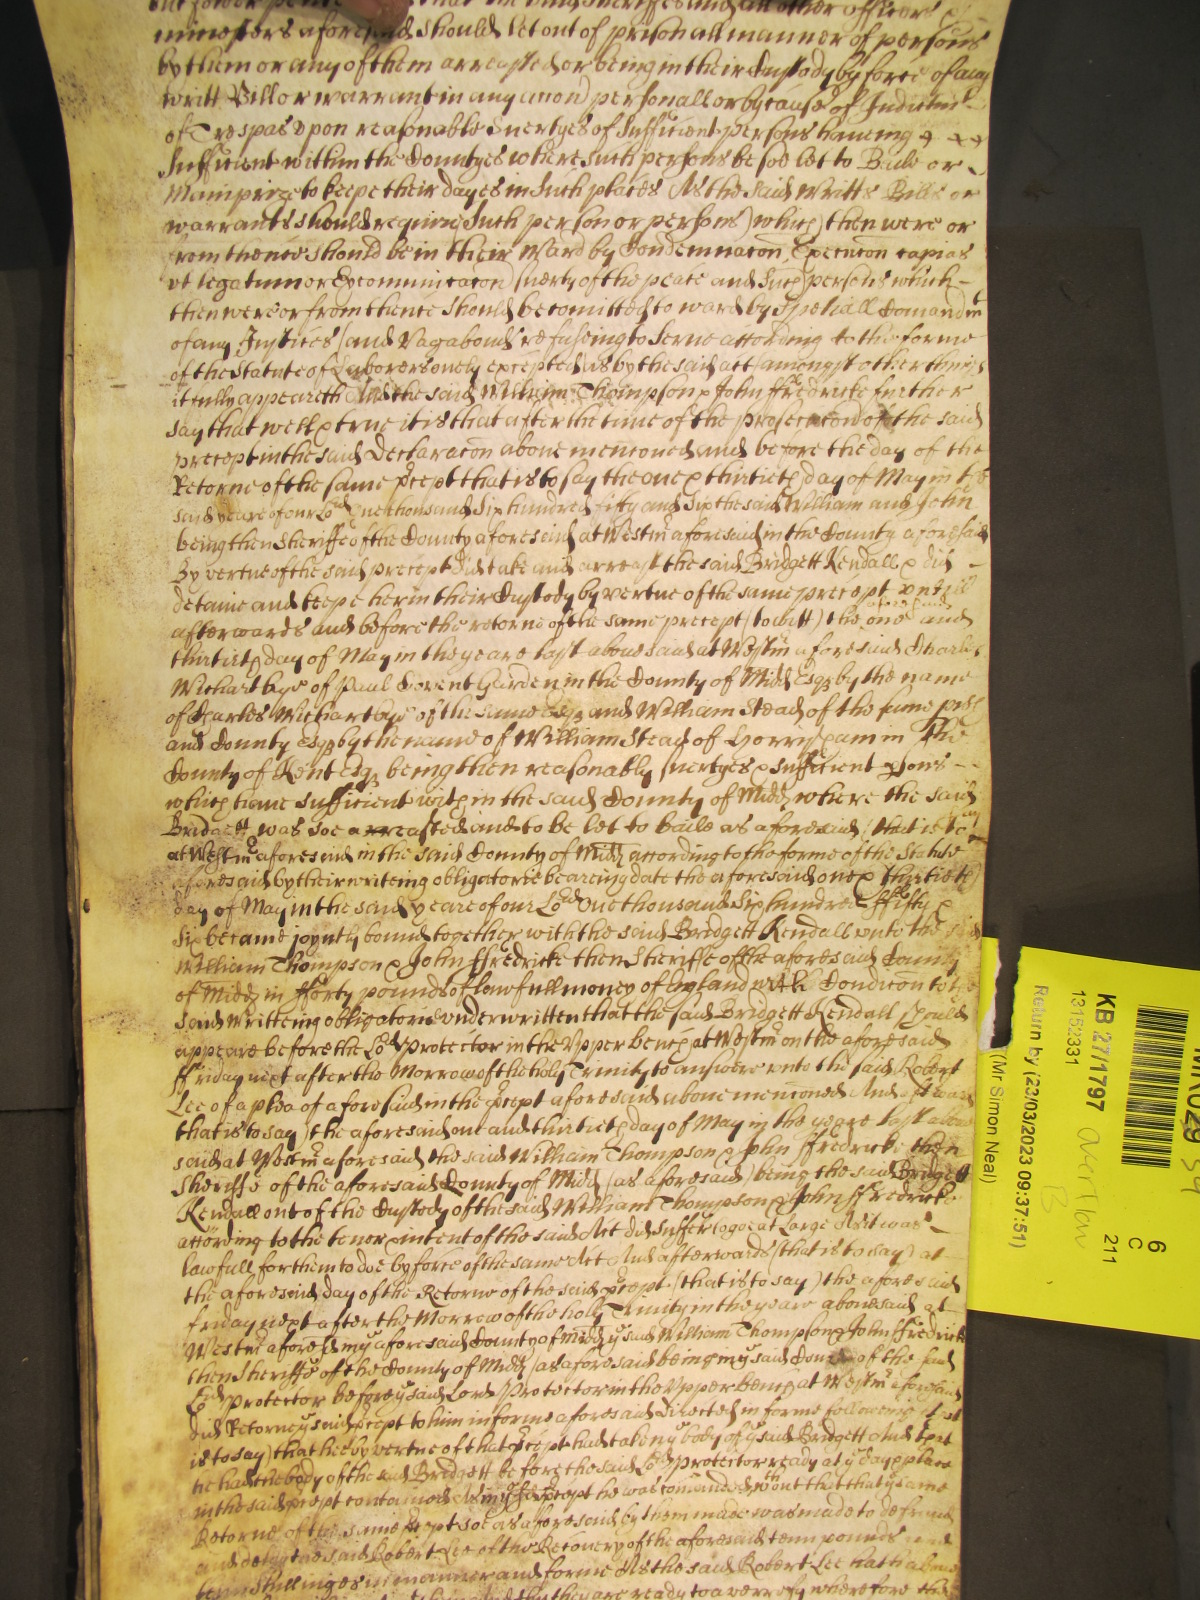 ministers aforesaid should let out of prison all manner of persons
by them or any of them arrested or being in their Custody by force of any
writt Bill or warrant in any accon personall or by cause of Indictmt
of Trespas vpon reasonable suertyes of sufficient persons haueing
sufficient within the Countyes where such persons be soe let to Baile or
Mainprize to keepe their dayes in such places As the said writts Bills or
warrants should require Such person or persons which then were or
from thence should be in their Ward by Condemnacon Execucon capias
vt legatum or Excommunicacon suerty of the peace and such persons which
then were or from thence should be comitted to ward by speciall Comandmt
of any Justices and Vagabonds refuseing to serue according to the forme
of the Statute of Laborers onely excepted as by the said act amongst other things
it fully appeareth And the said William Thompson & John ffredricke further
say that well & true it is that after the time of the prosecucon of the said
precept in the said Declaracon aboue mencioned and before the day of the
Retorne of the same precept that is to say the one & thirtieth day of May in the
said yeare of our Lord One thousand Six hundred fifty and Six the said William and John
being then Sheriffe of the County aforesaid at Westmr aforesaid in the County aforesaid
By vertue of the said precept did take and arreast the said Bridgett Kendall & did
detaine and keepe her in their Custody by vertue of the same precept vntill
afterwards and before the retorne of the same precept (to witt) the one and
thirtieth day of May in the yeare last abouesaid at Westmr aforesaid Charles
Wichart of Paul Covent Garden in the County of Midd Esqr by the name
of Charles Wichart of the same Esqr and William Stead of the same
and County Esqr by the name of William Stead of in the
County of Kent Esqr being then reasonably suertyes & sufficient psons
which haue sufficient within the said County of Midd where the said
Bridgett was soe arreasted and to be let to baile as aforesaid (that is to say
at Westmr aforesaid in the said County of Midd according to the forme of the Statute
aforesaid by their writeing obligatorie beareing date the aforesaid one & thirtieth
day of May in the said yeare of our Lord One thousand Six hundred ffifty &
Six became joyntly bound together with the said Bridgett Kendall vnto the said
William Thompson & John ffredricke then Sheriffe of the aforesaid County
of Midd in fforty pounds of lawfull money of England with Condicon to the
said writteing obligatorie vnderwritten that the said Bridgett Kendall should
appeare before the Lord Protector in the Vpper bench at Westmr on the aforesaid
ffriday next after the Morrow of the holy Trinity to answere vnto the said Robert
Lee of a plea of aforesaid in the precept aforesaid aboue mencioned And afterwards
that is to say the aforesaid one and thirtieth day of May in the yeare last aboue
said at Westmr aforesaid the said William Thompson & John ffredricke then
Sheriffe of the aforesaid County of Midd (as aforesaid) being the said Bridgett
Kendall out of the Custody of the said William Thompson & John ffredricke
according to the tenor & intent of the said Act did suffer to goe at Large As it was
lawfull for them to doe by force of the same Act And afterwards (that is to say) at
the aforesaid day of the Retorne of the said precept (that is to say) the aforesaid
friday next after the Morrow of the holy Trinity in the yeare abouesaid at
Westmr aforesd in ye aforesaid County of Midd ye said William Thompson & John ffredricke
then Sheriffe of the County of Midd (as aforesaid being in ye said Court of the said
Lord Protector before ye said Lord Protector in the Vpper bench at Westmr aforesaid
did Retorne ye said precept to him in forme aforesaid directed in forme following that
is to say) that hee by vertue of that precept had taken ye body of ye said Bridgett And that
he had the body of the said Bridgett before the said Lord Protector ready at ye day & place
in the said precept contained As in ye sd precept he was comanded wthout that that ye same
Retorne of the same precept soe as aforesaid by them made was made to defraud
and delay the said Robert Lee of the Recouery of the aforesaid tenn pounds and
tenn shillinges in manner and forme As the said Robert Lee hath aboue
they are ready to averre wherefore
KB 27/1797
13152331
Return by (23/03/2023 09:37:51)
(Mr Simon Neal)
211
C
6